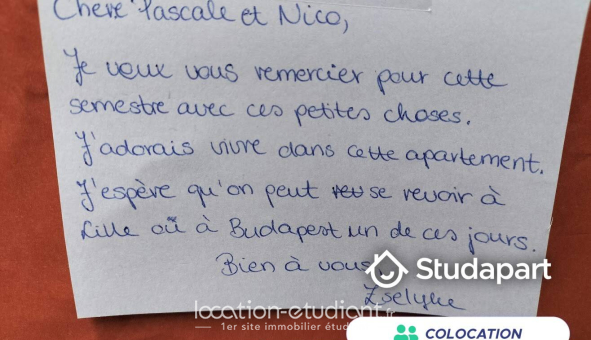 Chere Pascale et Nico,
Je veux vous remercier pour cette
semestre avec ces petites choses.
J'adorais vivre dans cette apartement.
J'espère qu'on peut se revoir à
Lille où à Budapest un de ces jours.
Bien à vous,
Zselyke
Studapart
location-etudiant.fr
1er site immobilier étud
COLOCATION